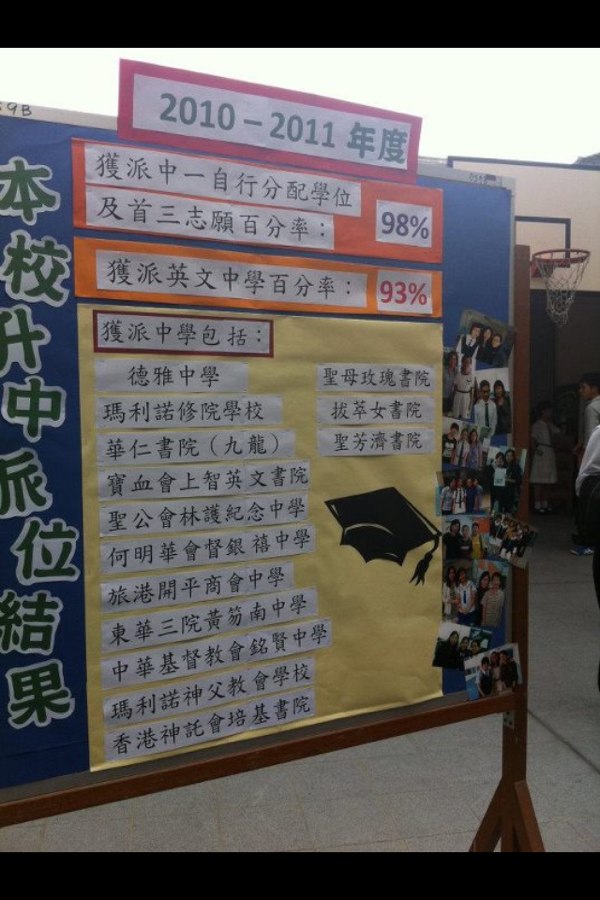 本校升中派位結果
2010 – 2011 年度
獲派中一自行分配學位
及首三志願百分率：
98%
獲派英文中學百分率：
93%
獲派中學包括：
德雅中學
瑪利諾修院學校
華仁書院（九龍）
寶血會上智英文書院
聖公會林護紀念中學
何明華會督銀禧中學
旅港開平商會中學
東華三院黃笏南中學
中華基督教會銘賢中學
瑪利諾神父教會學校
香港神託會培基書院
聖母玫瑰書院
拔萃女書院
聖芳濟書院